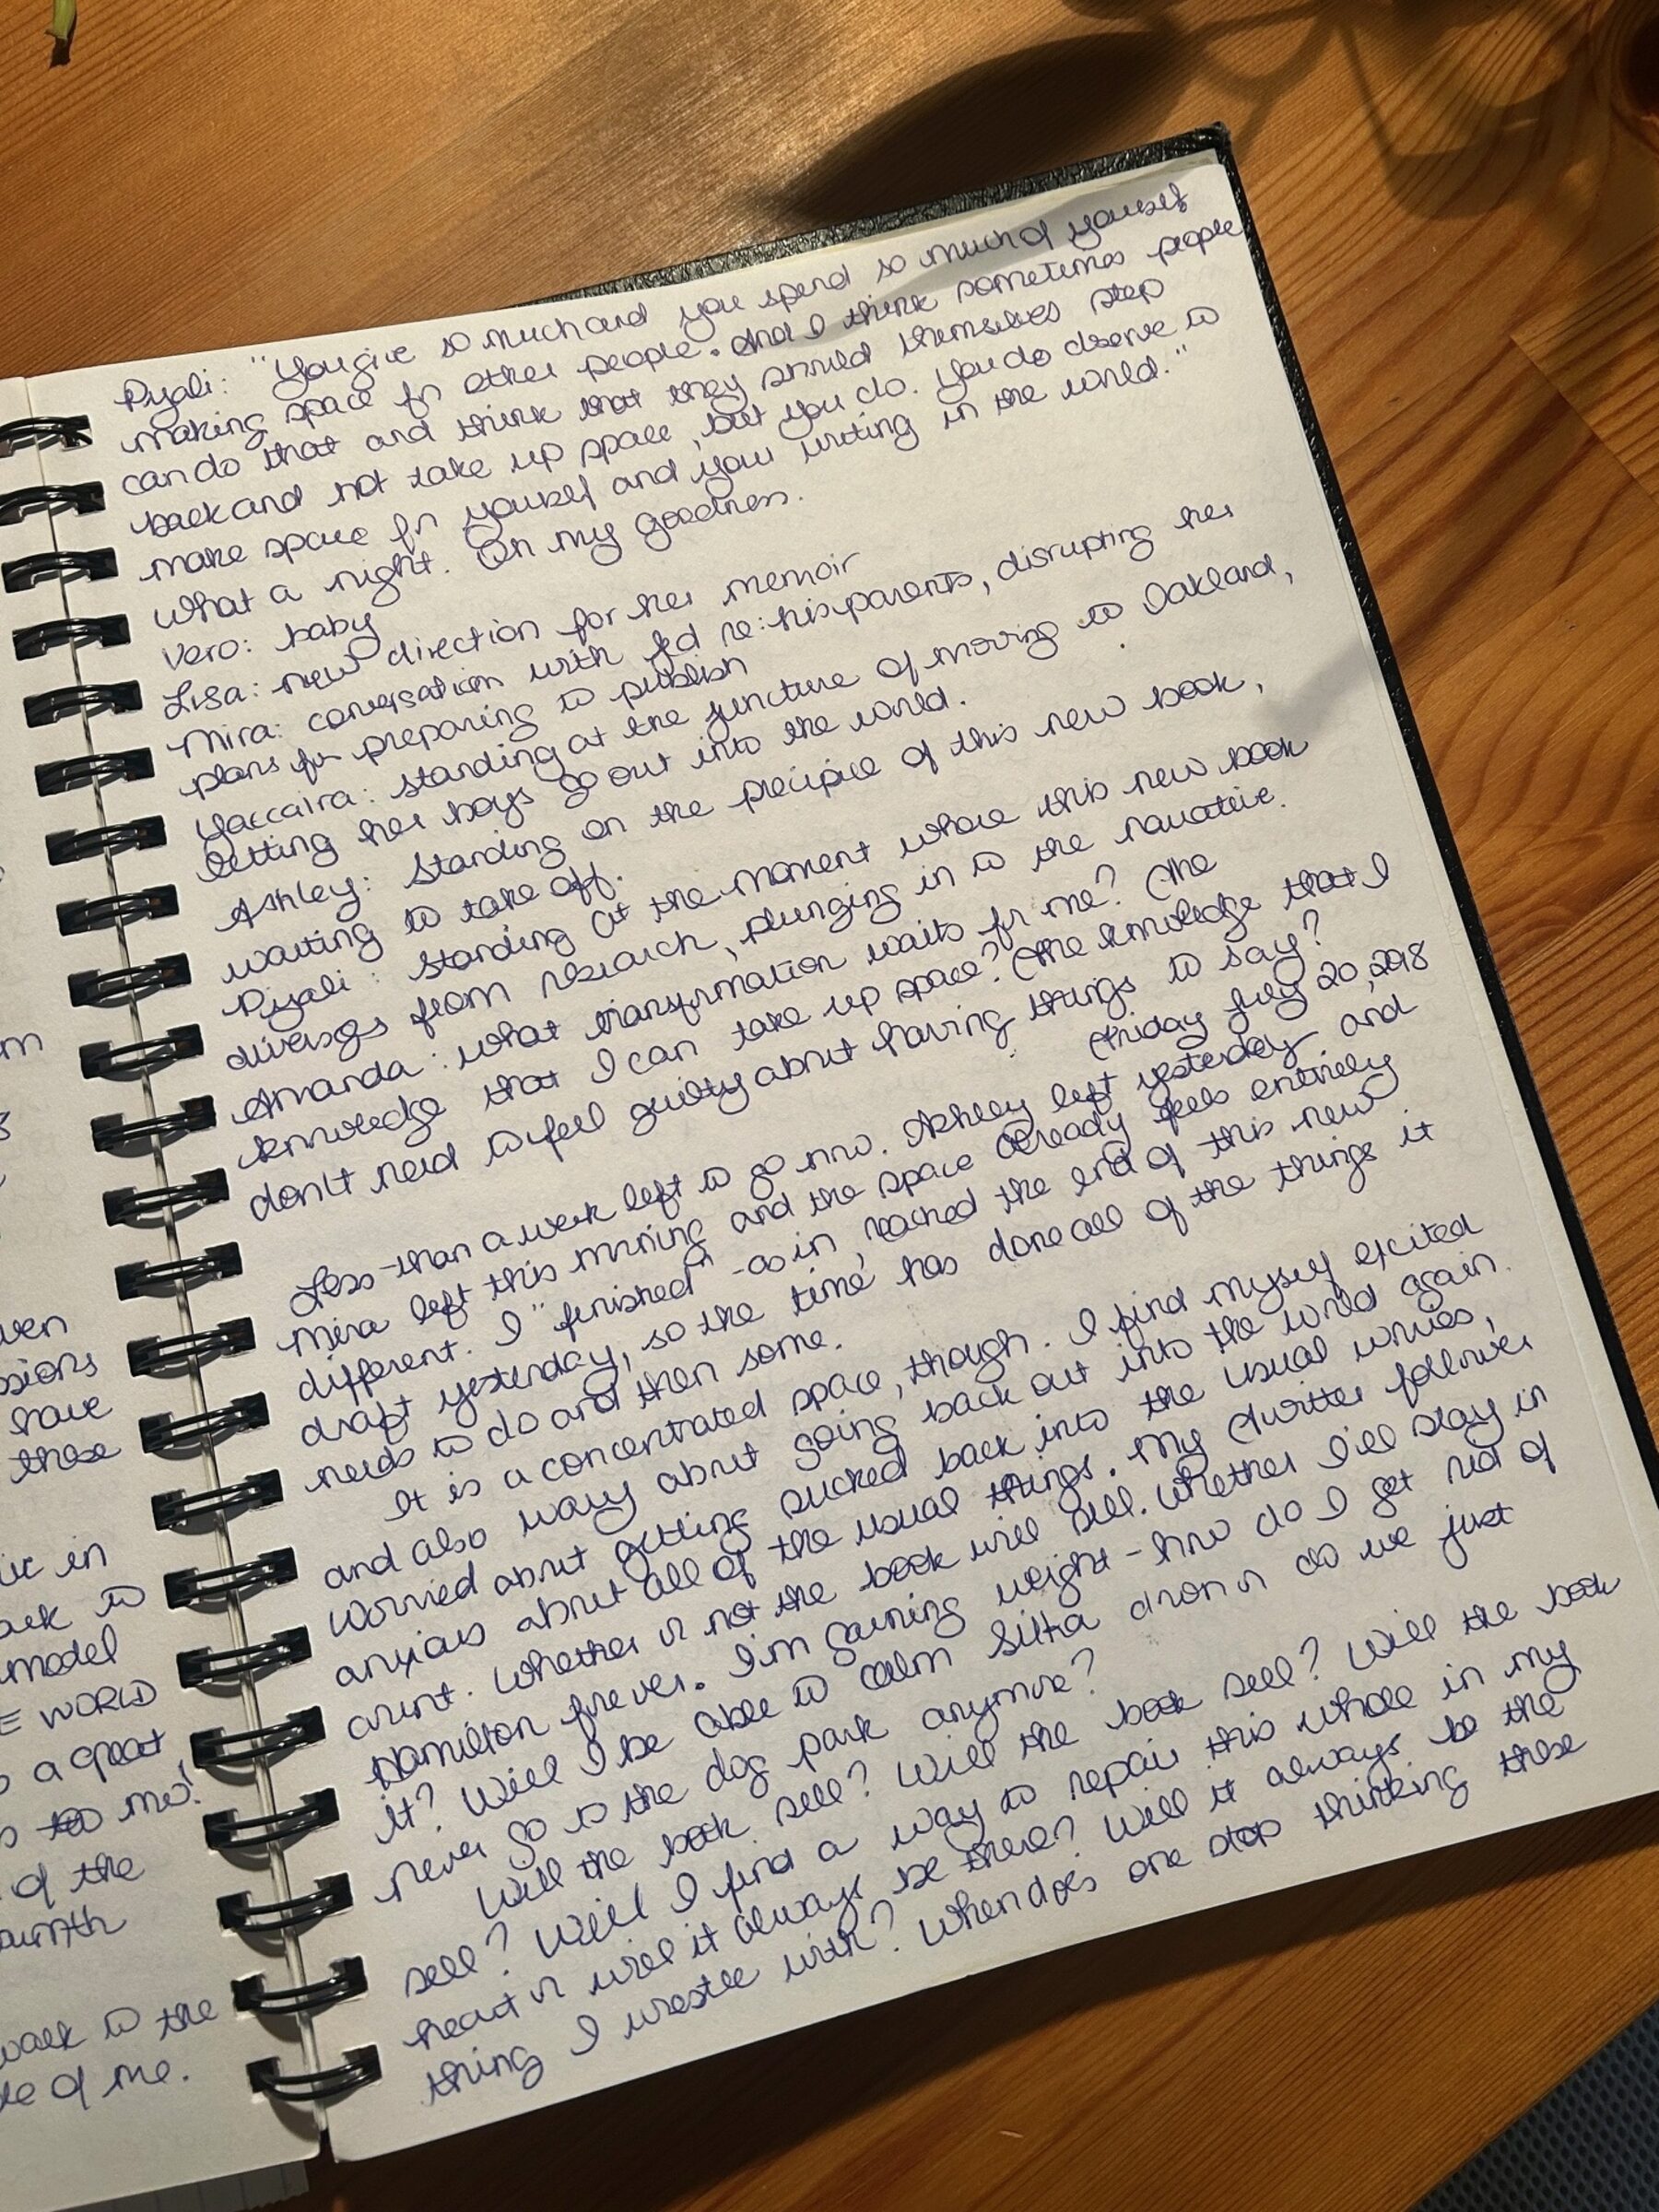 m
ven
ssions
have
these
in
back to
model
E WORLD
a great
to me!
of the
walk to the
of me.
Piyali: "You give so much and you spend so much of yourself
making space for other people. And I think sometimes people
can do that and think that they should themselves step
back and not take up space, but you do. You do deserve to
make space for yourself and your writing in the world."
What a night. Oh my goodness.
Vero: baby
Lisa: new direction for her memoir
Mira: conversation with Jed re: his parents, disrupting her
plans for preparing to publish
Yaccaira: standing at the juncture of moving to Oakland,
letting her boys go out into the world.
Ashley: Standing on the precipice of this new book,
waiting to take off.
Piyali: standing at the moment where this new book
diverges from research, plunging in to the narrative.
Amanda: what transformation waits for me? (The
knowledge that I can take up space? (The knowledge that I
don't need to feel guilty about having things to say?
Friday July 20, 2018
Less than a week left to go now. Ashley left yesterday and
Mira left this morning and the space already feels entirely
different. I "finished" - as in, reached the end of this new
draft yesterday, so the time has done all of the things it
needs to do and then some.
It is a concentrated space, though. I find myself excited
and also wary about going back out into the world again.
Worried about getting sucked back into the usual worries,
anxious about all of the usual things. My twitter follower
count. Whether or not the book will sell. Whether I'll stay in
Hamilton forever. I'm gaining weight - how do I get rid of
it? Will I be able to calm Sitka down or do we just
never go to the dog park anymore?
Will the book sell? Will the book sell? Will the book
sell? Will I find a way to repair this whole in my
heart or will it always be there? Will it always be the
thing I wrestle with? When does one stop thinking these